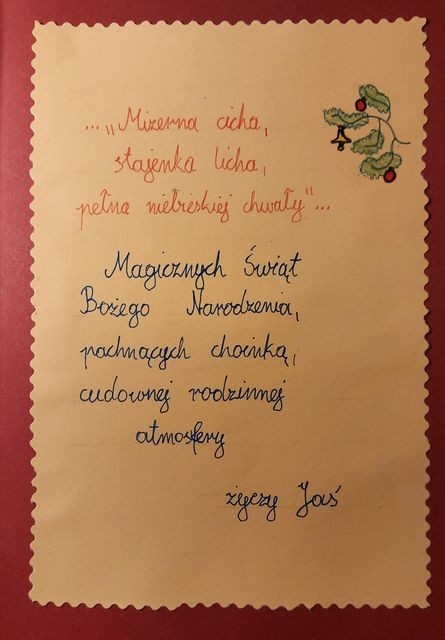 ..."Mizerna cicha,
stajenka licha,
pełna niebieskiej chwały"...
Magicznych Świąt
Bożego Narodzenia,
pachnących choinką,
cudownej rodzinnej
atmosfery
życzy Jaś